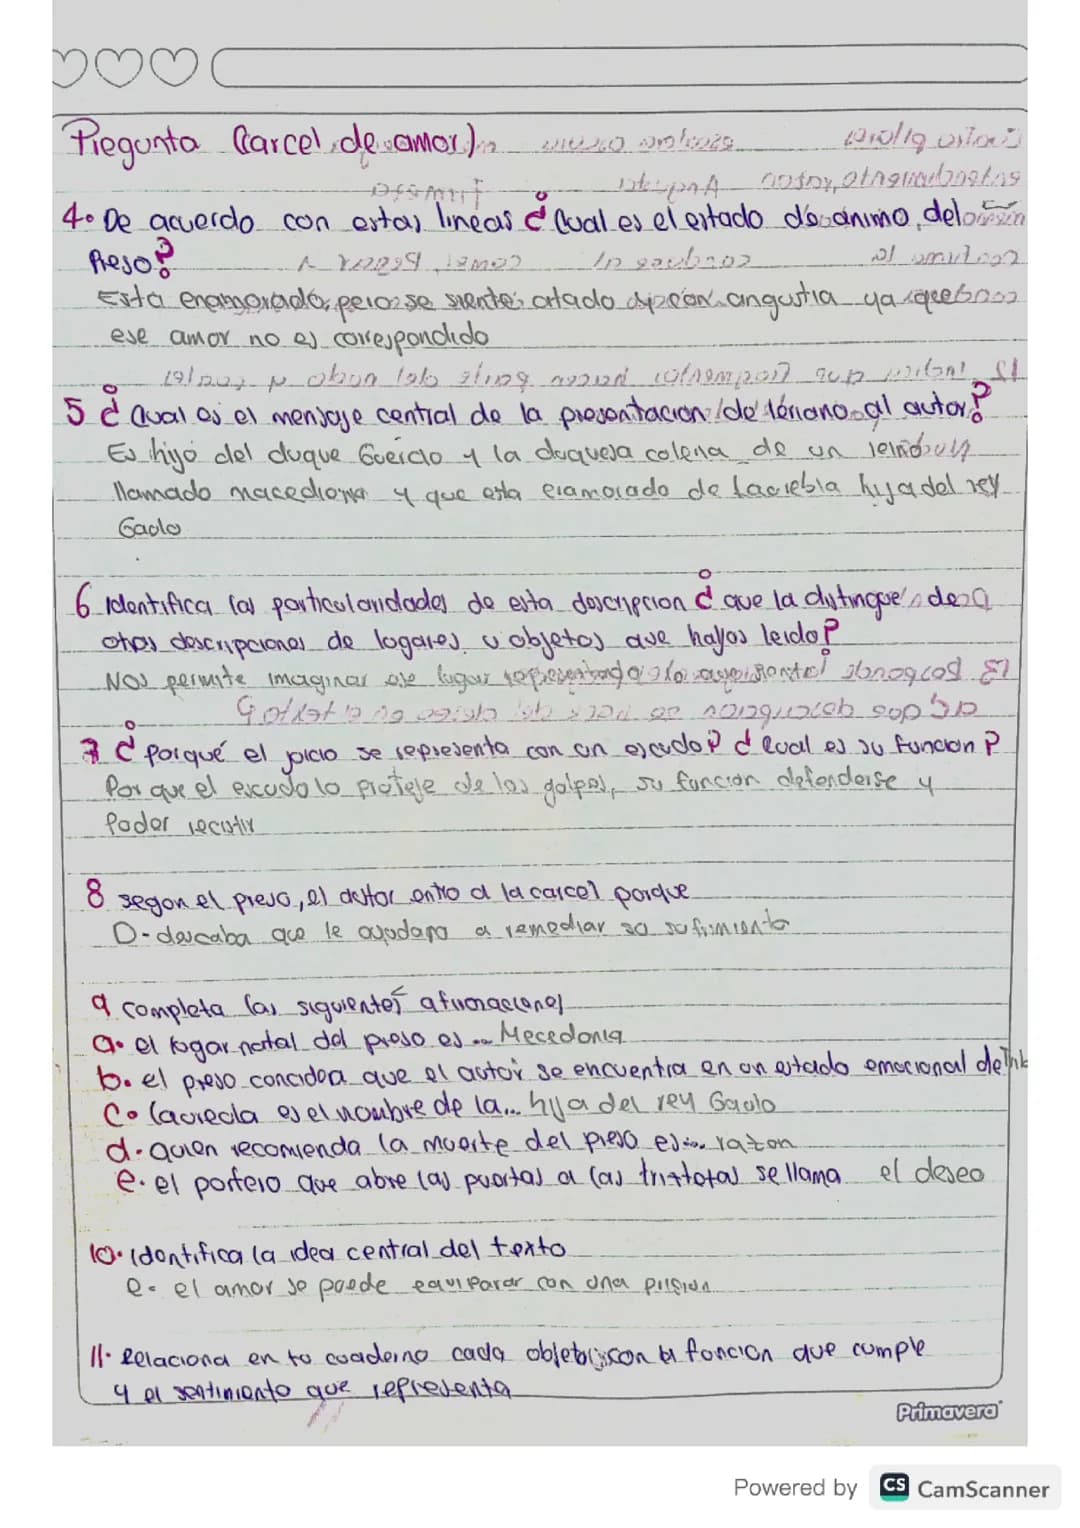 Pregunta (carcel de amor)
4. De acuerdo con estas lineas ¿Cual es el estado de animo del
Preso?
Esta enamorado, pero se siente atado y con angustia ya que
ese amor no es correspondido
5 ¿Cual es el mensaje central de la presentacion de leriano al autor?
Es hijo del duque Guercio y la duquesa colena de un reino
llamado macedonia y que esta enamorado de lacrebla hija del rey
Gaulo
6 identifica las particularidades de esta descripcion ¿que la distingue de
otras descripciones de lugares u objetos que hallas leido?
Nos permite imaginar ese lugar representando
7 ¿porqué el juicio se representa con un escudo? ¿Cual es su funcion?
Por que el escudo lo proteje de los golpes, su funcion defenderse y
Poder recistir
8 segun el preso, el autor entro a la carcel porque
D-descaba que le ayudara a remediar su sufrimiento
9 completa las siguientes afirmaciones
a. el lugar natal del preso es ... Mecedonia
b. el preso concidera que el autor se encuentra en un estado emocional de
C. laurecla es el nombre de la... hija del rey Gaulo
d. quien recomienda la muerte del preso es... razon
e. el portero que abre las puertas a las tristotas se llama el deseo
10. identifica la idea central del texto
e- el amor se puede equiparar con una prision
11. Relaciona en tu cuaderno cada objeto con la funcion que cumple
y el sentimiento que representa
Primavera
Powered by CS CamScanner